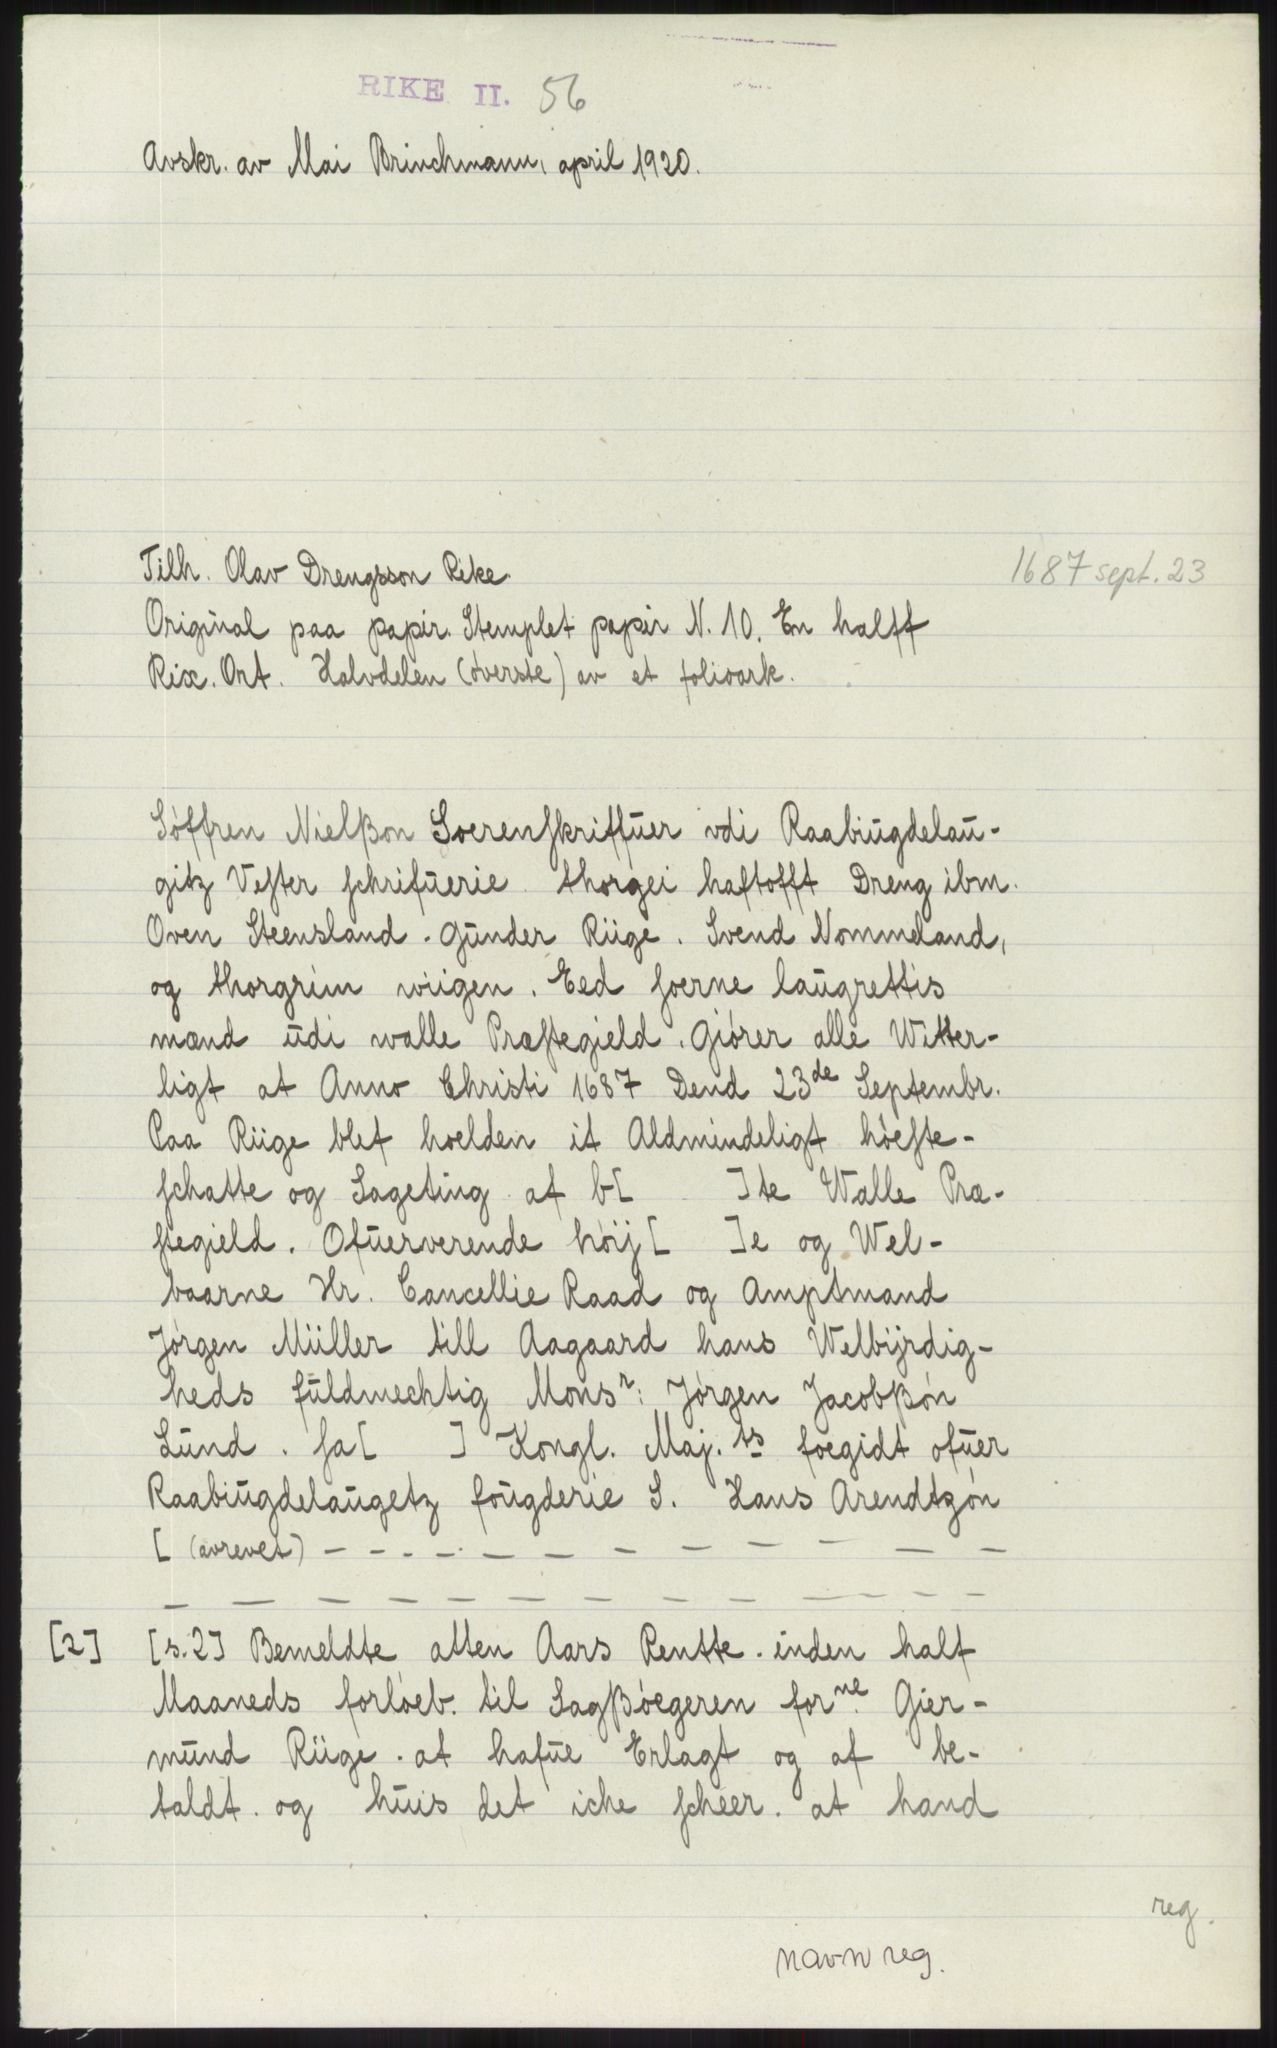 RIKE II. 56
Avskr. av Mai Brinchmann, april 1920.
Tilh. Olav Drengsson Rike.
1687 sept. 23
Original paa papir. Stemplet papir N. 10. En halff
Rix. Ort. Halvdelen (øverste) av et folioark.
Søffren Nielßøn Soerenskriffuer vdi Raabiugdelau-
gitz Vester schrifuerie. thorgei haftofft Dreng ibm.
Oven Steensland. Gunder Riige. Svend Nommeland,
og thorgrim wiigen. Eed soerne laugrettis
mænd udi walle Præstegield. Giörer alle Witter-
ligt at Anno Christi 1687 Dend 23de Septembr.
Paa Riige blef hoelden it Aldmindeligt höeste-
schatte og Sageting af b[ ]te Walle Præ-
stegield. Ofuerverende höij[ ]e og Wel-
baarne Hr. Cancellie Raad og Amptmand
Jörgen Müller till Aagaard hans Welbijrdig-
heds fuldmechtig Monsr: Jörgen Jacobßön
Lund. sa[ ] Kongl. Maj.ts foegidt ofuer
Raabiugdelaugetz fougderie S. Hans Arendtzön
[ (avrevet) - - - - - - - - - - - -
- - - - - - - - - - - - -
[2] [s.2] Bemeldte atten Aars Rentte. inden half
Maaneds forlöeb. til Sagßöegeren forne. Gier-
mund Riige. at hafue Erlagt og af be-
taldt. og huis det iche scheer. at hand
reg.
navn reg.